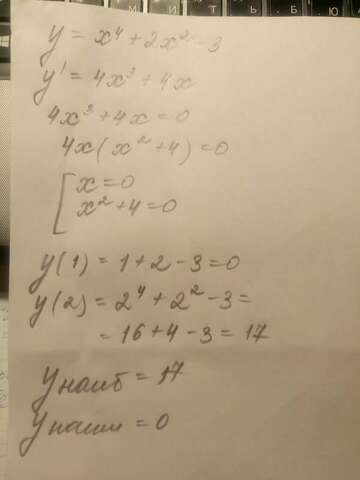 y = x⁴ + 2x² - 3
y' = 4x³ + 4x
4x³ + 4x = 0
4x(x² + 4) = 0
[ x = 0
x² + 4 = 0
y(1) = 1 + 2 - 3 = 0
y(2) = 2⁴ + 2² - 3 =
= 16 + 4 - 3 = 17
y наиб = 17
y наим = 0